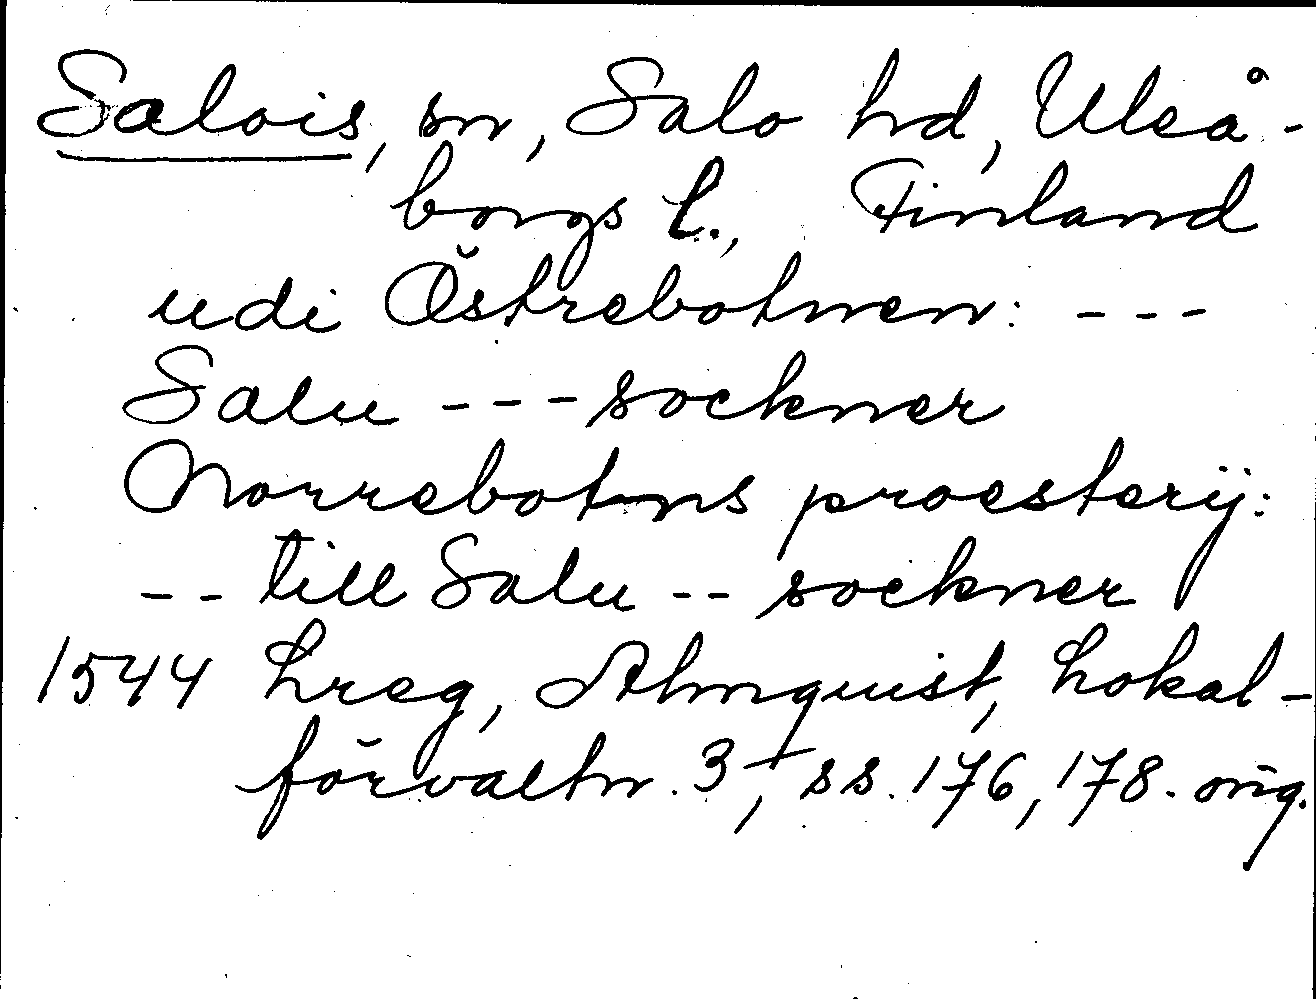 Salois, sn, Salo hd, Uleå-
borgs l., Finland
udi Östrebotnen: ---
Salu --- sockner
Norrebotns proesterij:
-- till Salu -- sockner
1544 Lreg, Almquist, Lokal-
förvaltn. 3, ss. 176, 178. orig.